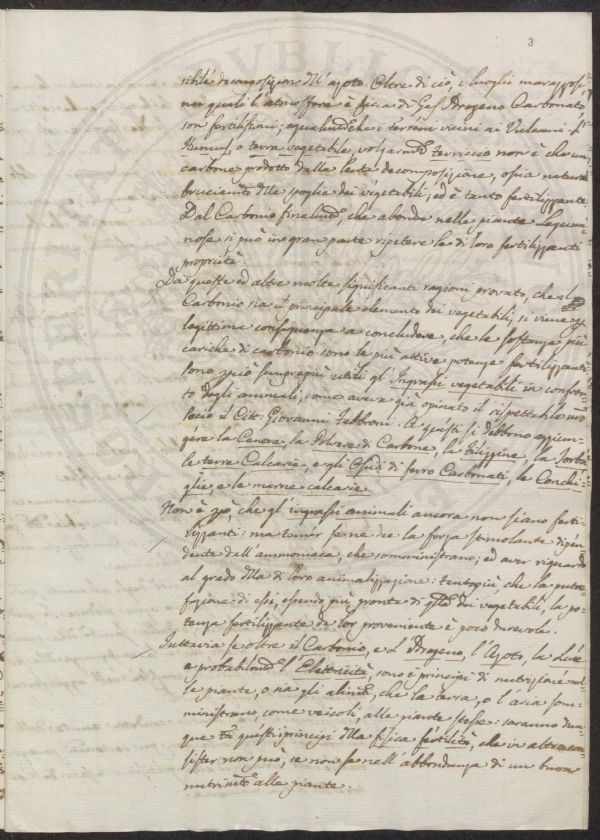 3
sibile decomposizione dell' azoto. Oltre di ciò, i luoghi
nei quali l'atmosfera è di Gas Idrogeno Carbonato,
son fertilissimi; egualmte che i terreni vicini ai Vulcani. L'
Humus, o terra vegetabile, volgarmte terriccio non è che un
carbone prodotto dalla lenta decomposizione, o sia
bruciamto delle spoglie dei vegetabili; ed è tanto fertilizzante.
Dal Carbonio finalmte, che abonda nelle piante Legumi-
nose si può in gran parte ripetere le di loro fertilizzanti
proprietà.
Da queste ed altre molte significanti ragioni provato, che il
Carbonio sia il principale elemento dei vegetabili, si viene p
legittima conseguenza a concludere, che le sostanze più
cariche di carbonio sono le più attive potenze fertilizzanti.
Sono pciò sempre più utili gl' Ingrassi vegetabili in confron-
to degli animali, come aveva già opinato il rispettabile nro
Socio il Citt. Giovanni Fabbroni. A questi si debbono aggiun-
gere la Cenere, la Polvere di Carbone, la Fuliggine, la Torba
le terre Calcarie, e gli Ossidi di ferro Carbonati, le Conchi-
glie, e le marne calcarie.
Non è pò, che gl' ingrassi animali ancora non siano ferti-
lizzanti: ma tener se ne dee la forza stimolante dipen-
dente dall' ammoniaca, che somministrano; ed aver riguardo
al grado della di loro animalizzazione: tantopiù, che la putre-
fazione di essi, essendo più pronta di qlla dei vegetabili, la po-
tenza fertilizzante da lor proveniente è poco durevole.
Tuttavia se oltre il Carbonio, e l' Idrogeno, l'Azoto, la Luce
e probabilmte l' Elettricità, sono i principi di nutrizione
le piante, o sia gli alimti, che la terra, o l'aria som-
ministrano, come veicoli, alle piante stesse: saranno dun-
que tti questi principi della fisica fertilità, che in altro con-
sister non può, se non se nell' abbondanza di un buon
nutrimto alle piante.